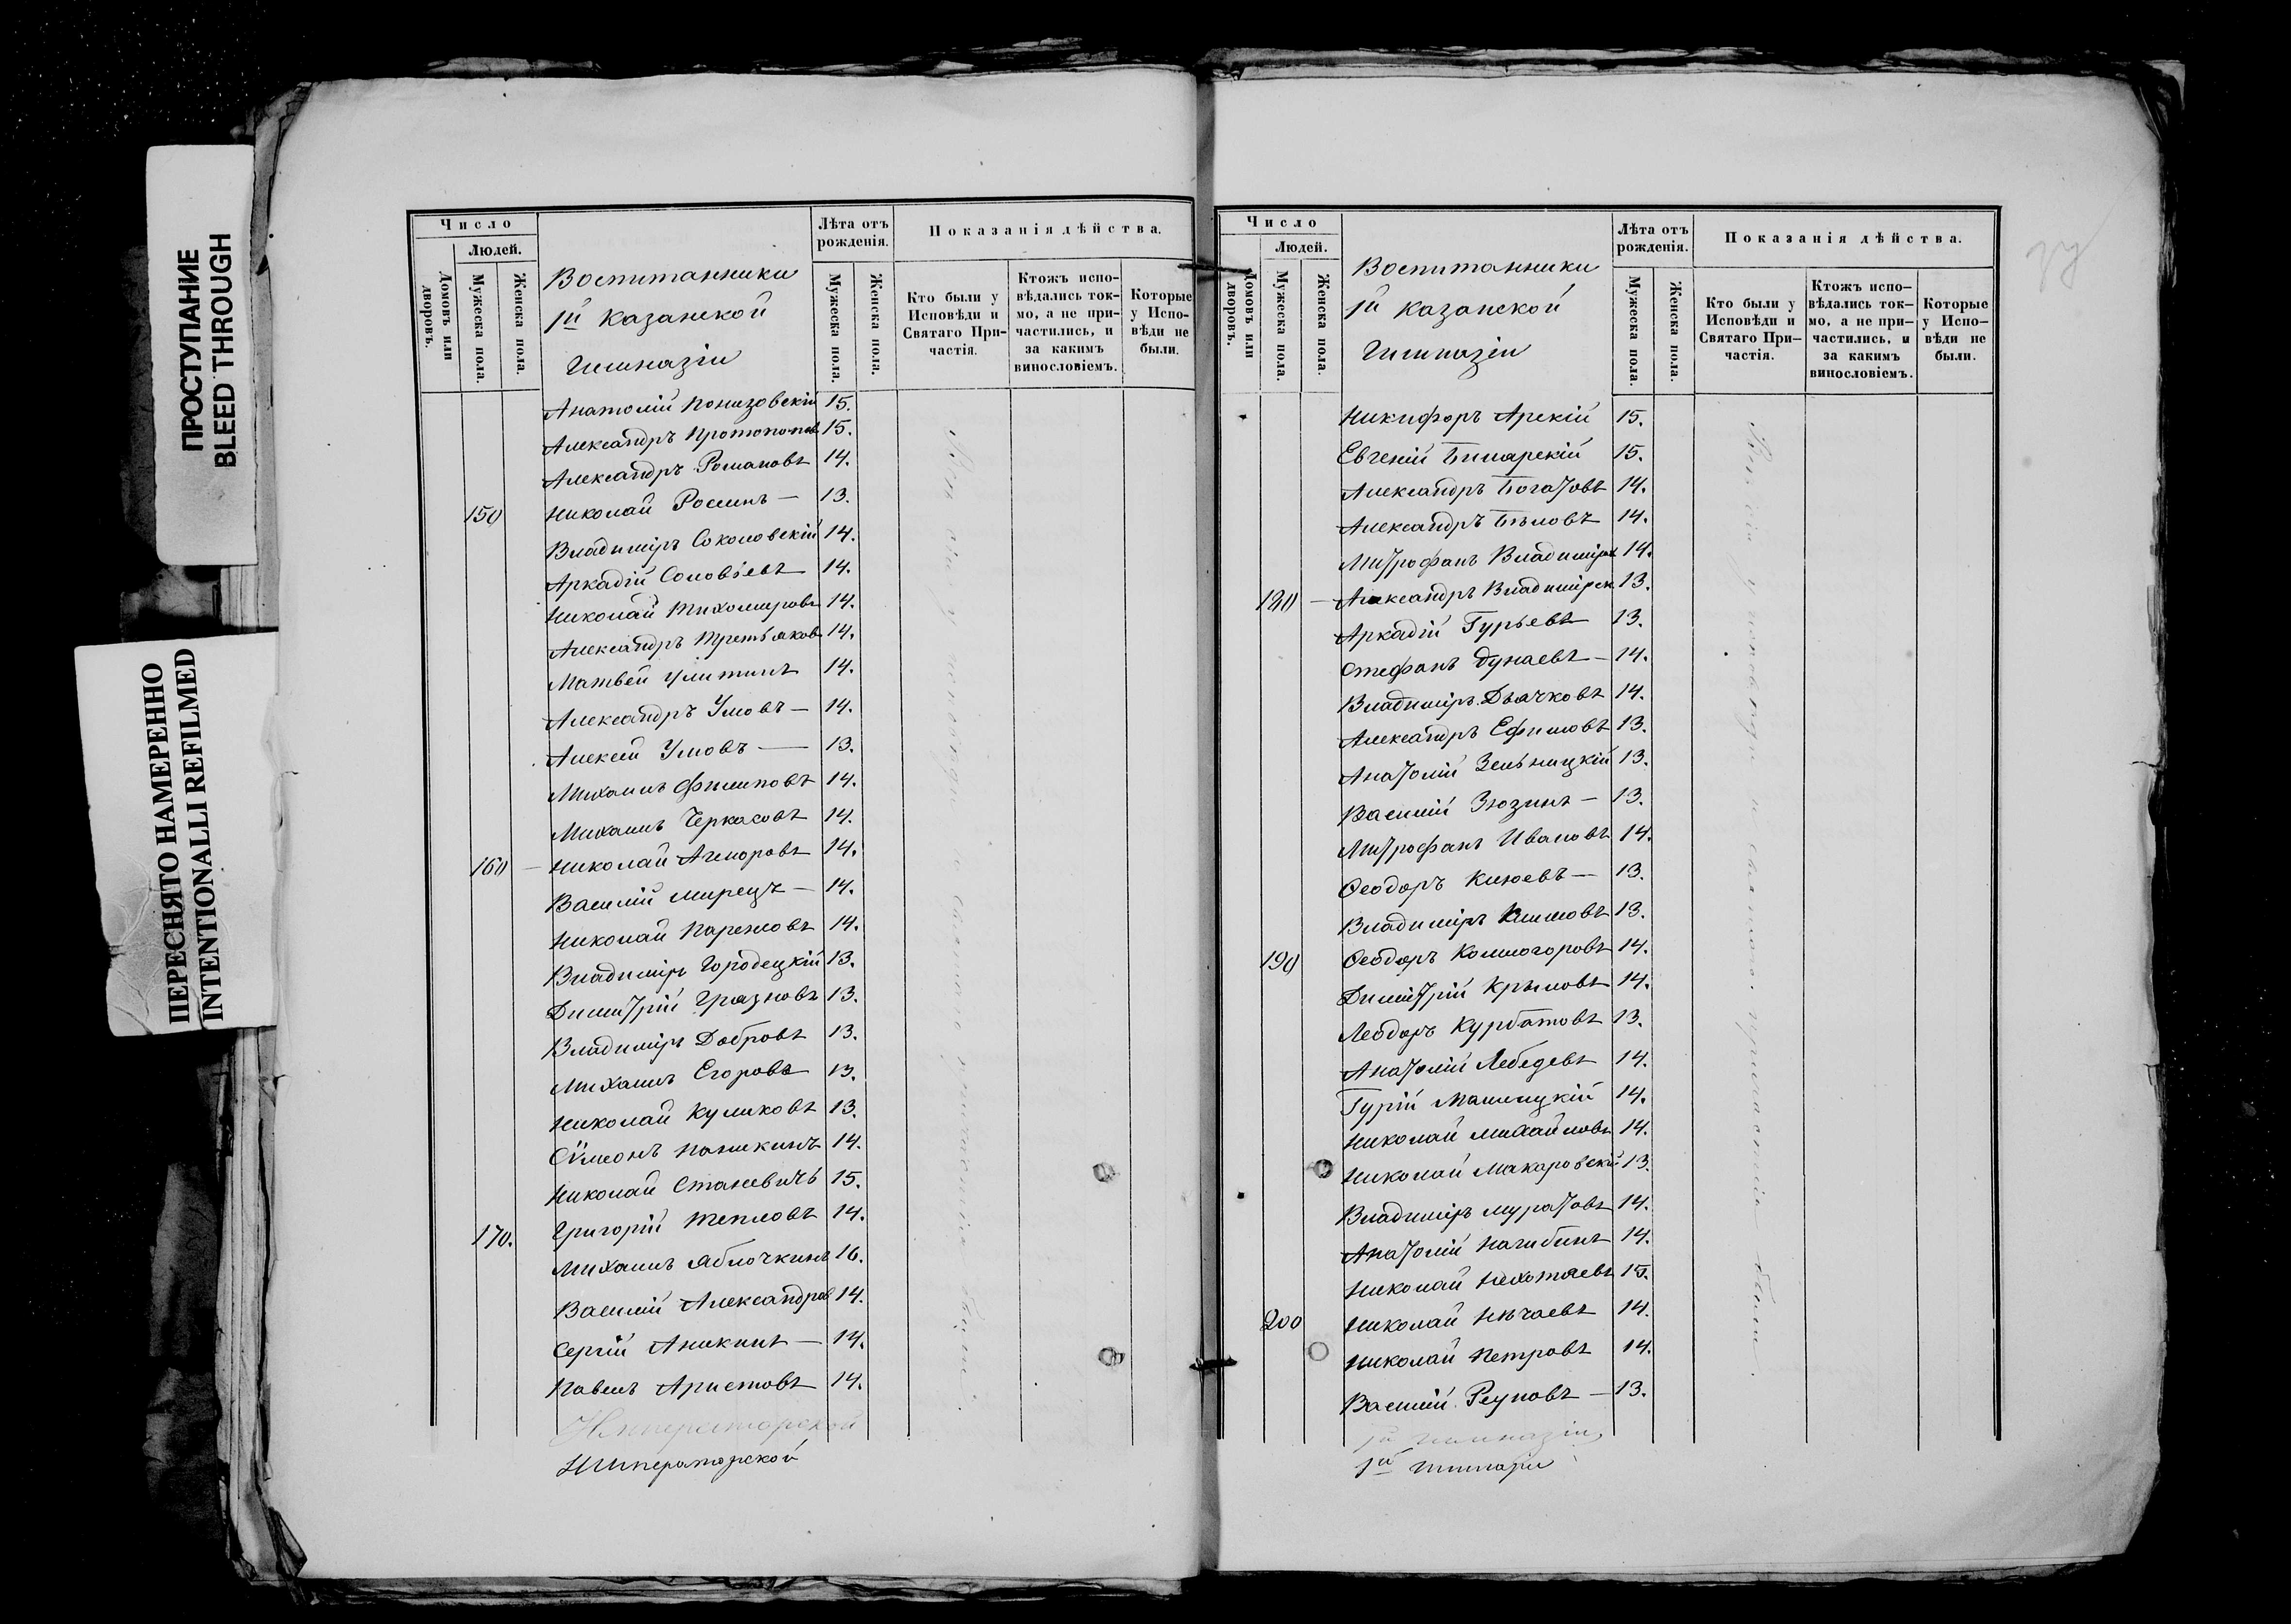 ПРОСТУПАНИЕ
BLEED THROUGH
ПЕРЕСНЯТО НАМЕРЕННО
INTENTIONALLI REFILMED
Число
Людей.
Домовъ или дворовъ.
Мужеска пола.
Женска пола.
Воспитанники
1й Казанской
Гимназіи
Лѣта отъ рожденія.
Мужеска пола.
Женска пола.
Показанія дѣйства.
Кто были у Исповѣди и Святаго Причастія.
Ктожъ исповѣдались токмо, а не причастились, и за какимъ винословіемъ.
Которые у Исповѣди не были.
Анатолій Понизовскій 15.
Александръ Протопопов 15.
Александръ Романовъ 14.
150 Николай Россинъ — 13.
Владиміръ Соколовскій 14.
Аркадій Соловьевъ 14.
Николай Тихомировъ 14.
Александръ Третьяков 14.
Матвей Улитинъ 14.
Александръ Умовъ — 14.
Алексей Умовъ — 13.
Михаилъ Филиповъ 14.
Михаилъ Черкасовъ 14.
160 — Николай Агноровъ 14.
Василій Мирецъ — 14.
Николай Паренсовъ 14.
Владиміръ Городецкій 13.
Димитрій Грязновъ 13.
Владиміръ Добровъ 13.
Михаилъ Егоровъ 13.
Николай Куликовъ 13.
Сѵмеонъ Паникинъ 14.
Николай Станевичъ 15.
170. Григорій Тепловъ 14.
Михаилъ Яблочкинъ 16.
Василій Александров 14.
Сергій Аникинъ — 14.
Павелъ Аристовъ 14.
Императорской
Императорской
Число
Людей.
Домовъ или дворовъ.
Мужеска пола.
Женска пола.
Воспитанники
1й Казанской
Гимназіи
Лѣта отъ рожденія.
Мужеска пола.
Женска пола.
Показанія дѣйства.
Кто были у Исповѣди и Святаго Причастія.
Ктожъ исповѣдались токмо, а не причастились, и за какимъ винословіемъ.
Которые у Исповѣди не были.
Никифоръ Арскій 15.
Евгеній Билярскій 15.
Александръ Богатовъ 14.
Александръ Бѣловъ 14.
Митрофанъ Владимірск 14.
180 — Александръ Владимірск 13.
Аркадій Гурьевъ 13.
Стефанъ Дунаевъ — 14.
Владиміръ Дьячковъ 14.
Александръ Ефимовъ 13.
Анатолій Зельницкій 13.
Василій Зюзинъ — 13.
Митрофанъ Ивановъ 14.
Ѳеодоръ Клюевъ — 13.
Владиміръ Климовъ 13.
190 Ѳеодоръ Колмогоровъ 14.
Димитрій Крыловъ 14.
Ѳеодоръ Курбатовъ 13.
Анатолій Лебедевъ 14.
Гурій Малицкій 14.
Николай Михайловъ 14.
Николай Макаровскій 13.
Владиміръ Муратовъ 14.
Анатолій Нагибинъ 14.
Николай Нехотяевъ 15.
200 Николай Нѣчаевъ 14.
Николай Петровъ 14.
Василій Реуновъ — 13.
1й Гимназіи
1й Гимназіи